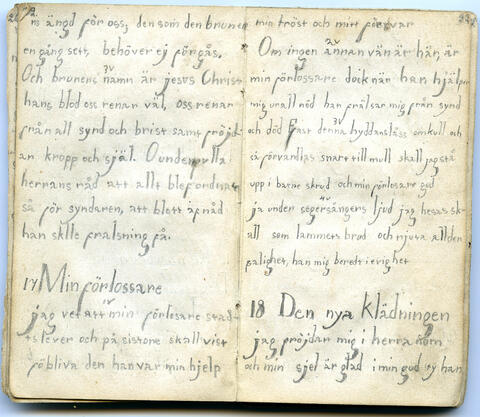 m ängd för oss, den som den brunen
en gång sett, behöver ej förgås.
Och brunens namn är jesus Christ
hans blod oss renar väl, oss renar
från all synd och brist samt fröjd-
ar kropp och själ. O underfulla
herrans råd att allt blef ordnat
så för syndaren, att blott af nåd
han sklle fralsning få.
17 Min förlossare
jag vet att min förlosare stad-
ts lever och på sistone skall vist
förbliva den han var min hjelp
min tröst och mitt försvar
Om ingen annan vän är här, är
min förlossare dock när han hjälper
mig ur all nöd han frälsar mig från synd
och död Fast denna hyddan slåss omkull och
så förvandlas snart till mull skall jag stå
upp i barne skrud och min förlosare gud
ja under segersångens ljud jag hesas sk-
all som lammets brud och njuta all den
salighet, han mig beredt i evighet
18 Den nya klädningen
jag fröjdar mig i herranom
och min själ är glad i min gud ty han